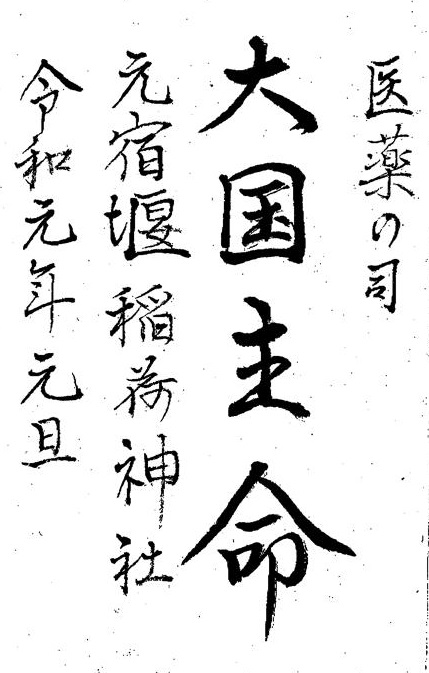 医薬の司
大国主命
元宿堰稲荷神社
令和元年元旦